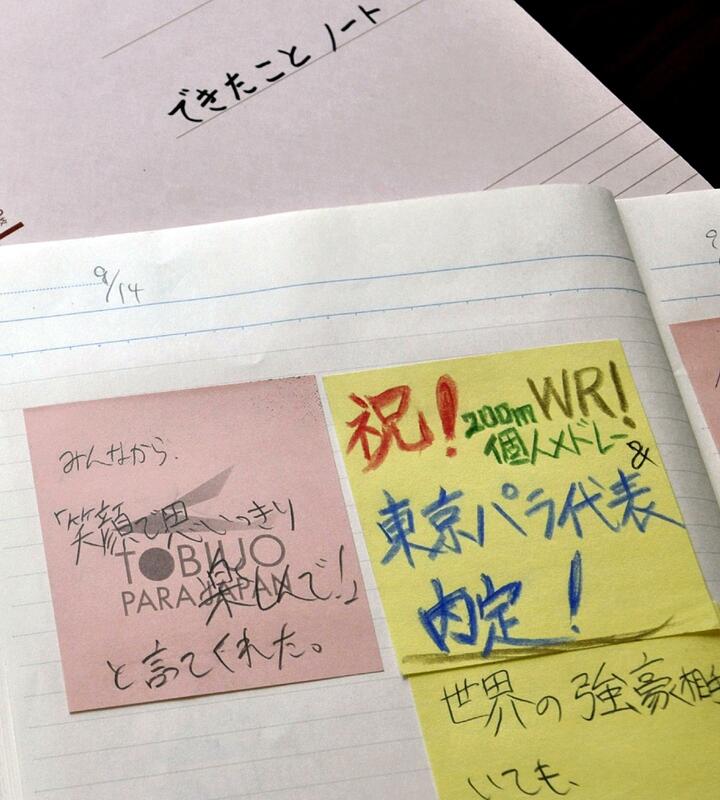 できたこと ノート
9/14
みんなから.
「笑顔で思いっきり
楽しんで!」
と言ってくれた。
TOBIUO
PARA JAPAN
祝!
200m WR!
個人メドレー
&
東京パラ代表
内定!
世界の強豪相
いても、